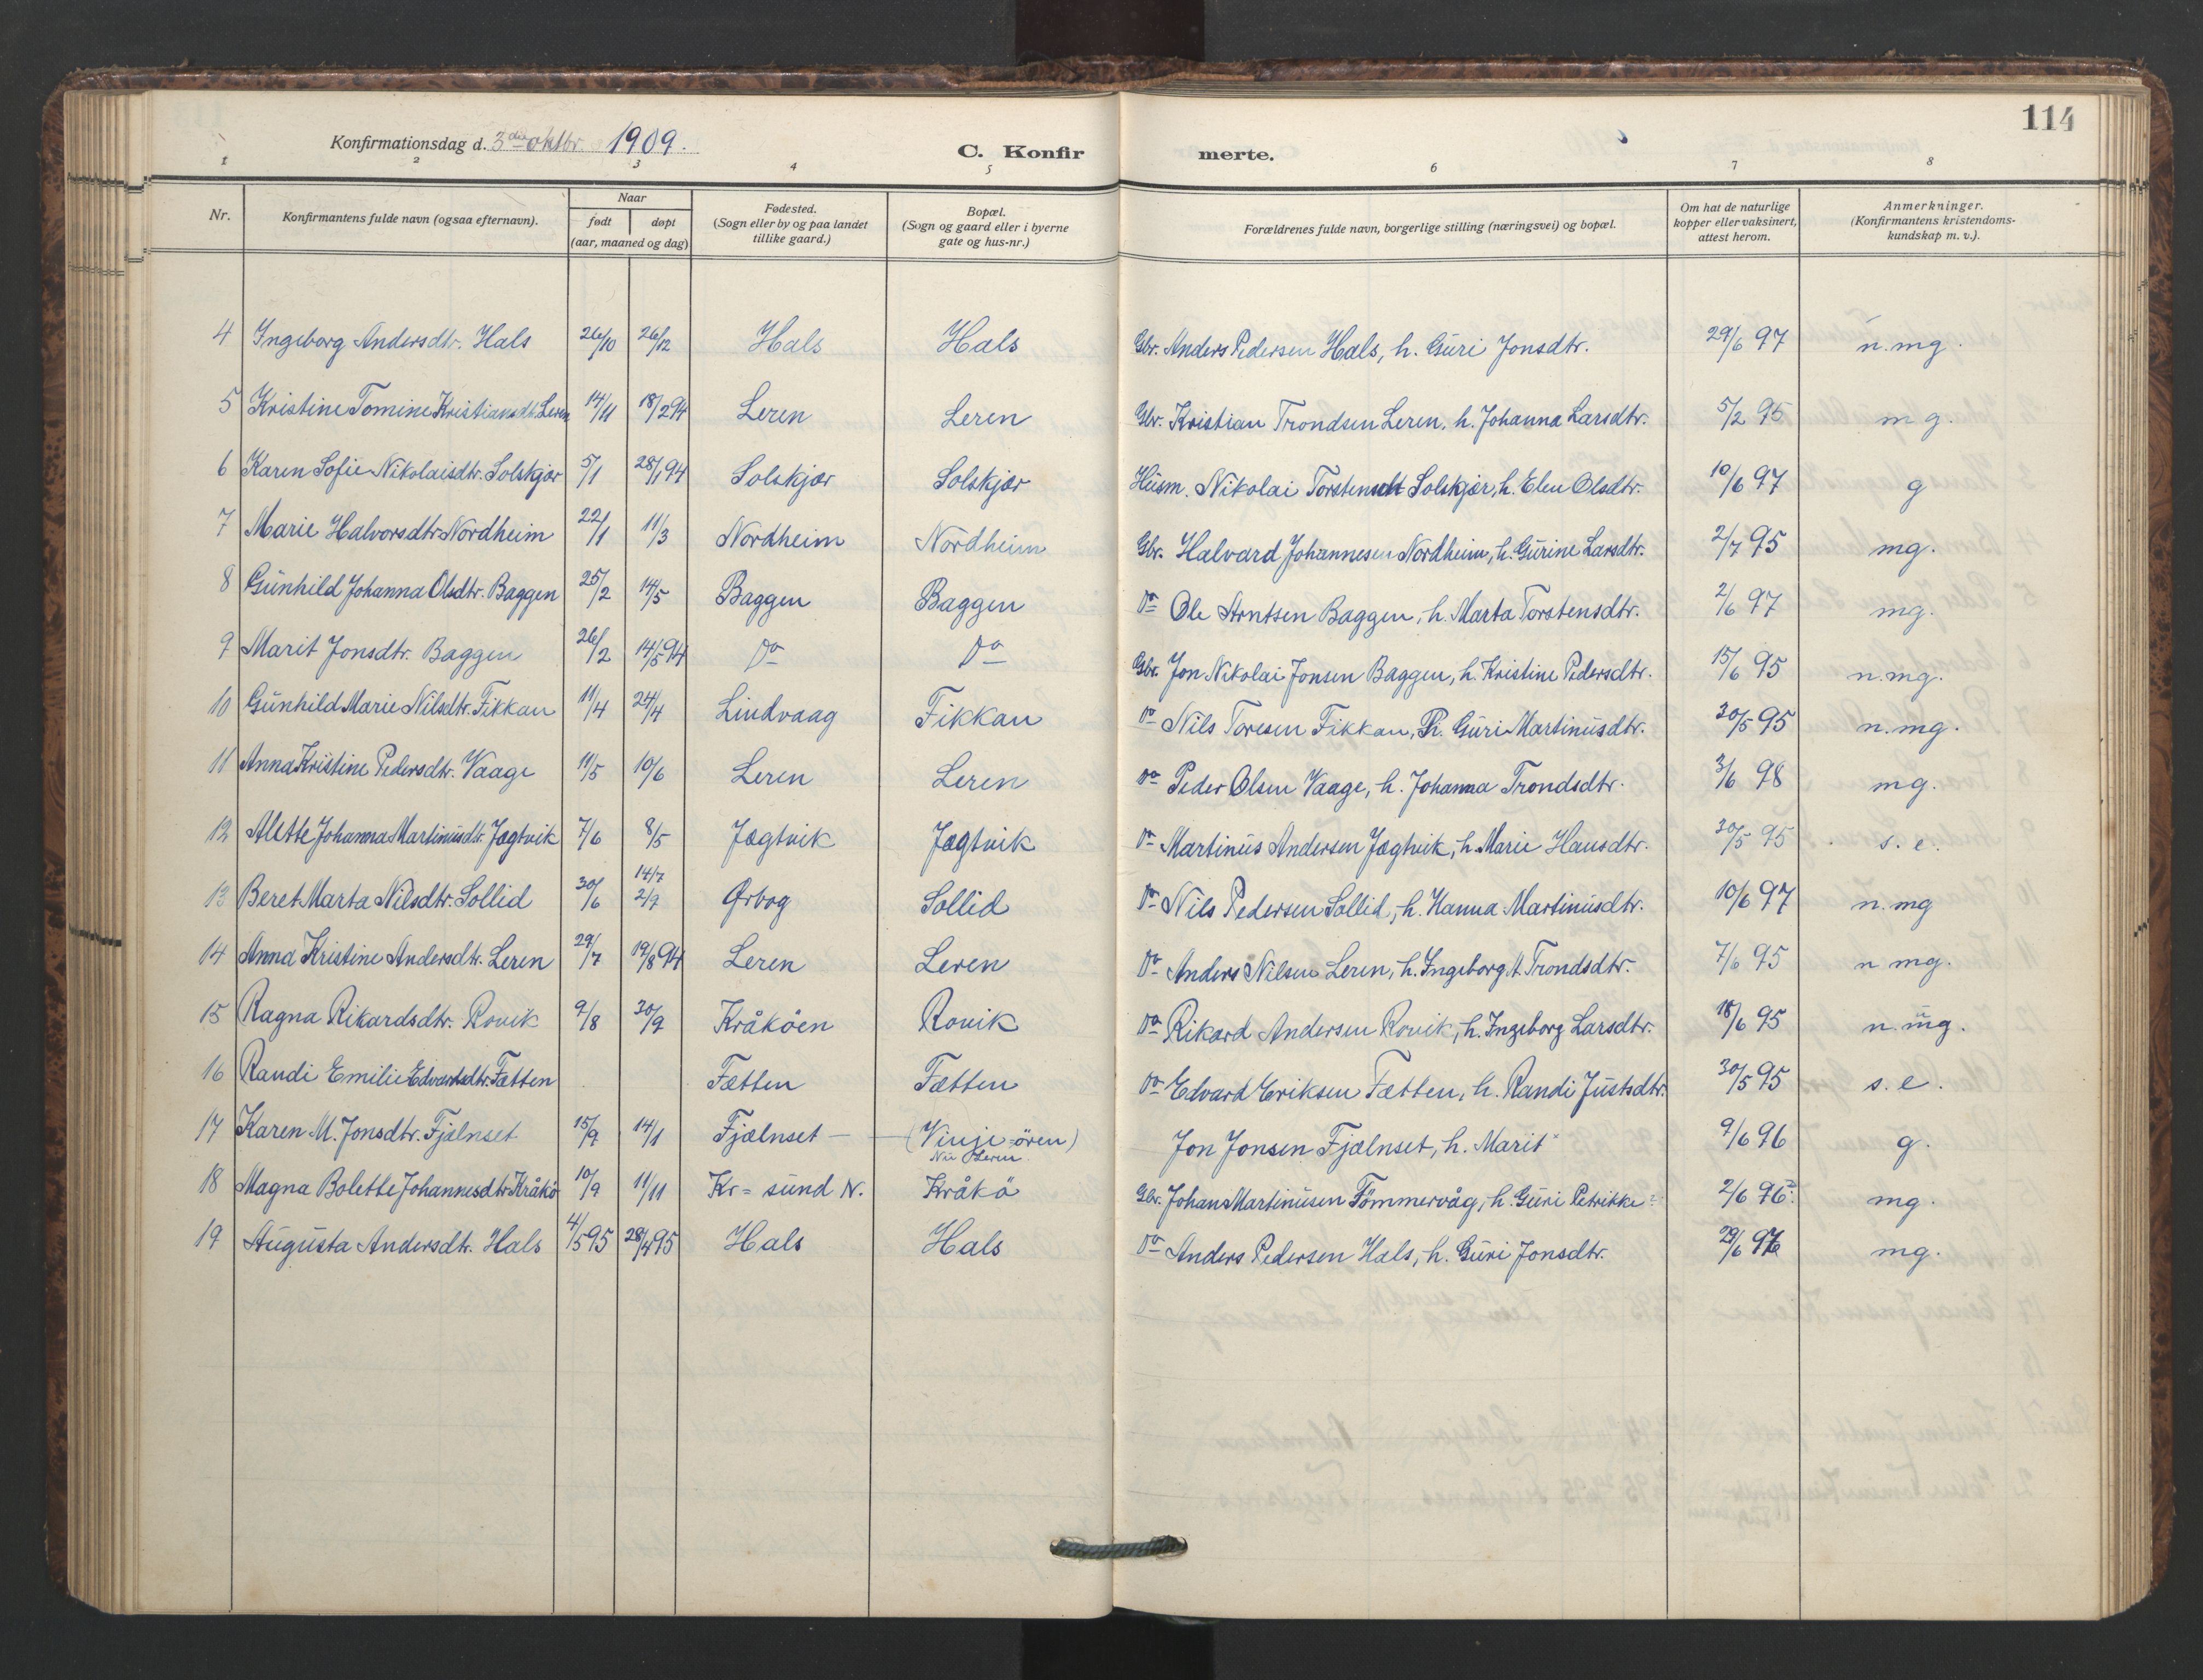 114
Konfirmationsdag d. 3die oktbr. 1909.
C. Konfirmerte.
1 2 3 4 5 6 7 8
Nr. Konfirmantens fulde navn (ogsaa efternavn). Naar født døpt (aar, maaned og dag) Fødested. (Sogn eller by og paa landet tillike gaard.) Bopæl. (Sogn og gaard eller i byerne gate og hus-nr.) Forældrenes fulde navn, borgerlige stilling (næringsvei) og bopæl. Om hat de naturlige kopper eller vaksinert, attest herom. Anmerkninger. (Konfirmantens kristendoms-kundskap m. v.).
4 Ingeborg Andersdtr. Hals 26/10 26/12 Hals Hals Gbr. Anders Pedersen Hals, h. Guri Jonsdtr. 29/6 97 n.mg.
5 Kristine Tomine Kristiansdtr. Leren 14/11 18/2 94 Leren Leren Gbr. Kristian Trondsen Leren, h. Johanna Larsdtr. 5/2 95 mg.
6 Karen Sofie Nikolaisdtr. Solskjær 5/1 28/1 94 Solskjær Solskjær Husm. Nikolai Torstensen Solskjær, h. Elen Olsdtr. 10/6 97 g
7 Marie Halvorsdtr. Nordheim 22/1 11/3 Nordheim Nordheim Gbr. Halvard Johannesen Nordheim, h. Gurine Larsdtr. 2/7 95 mg.
8 Gunhild Johanna Olsdtr. Baggen 25/2 14/5 Baggen Baggen Do Ole Arntsen Baggen, h. Marta Torstensdtr. 2/6 97 mg.
9 Marit Jonsdtr. Baggen 26/2 14/5 94 Do Do Gbr. Jon Nikolai Jonsen Baggen, h. Kristine Pedersdtr. 15/6 95 n.mg.
10 Gunhild Marie Nilsdtr. Fikkan 11/4 24/4 Lindvaag Fikkan Do Nils Toresen Fikkan, h. Guri Martinusdtr. 30/5 95 n.mg.
11 Anna Kristine Pedersdtr. Vaage 11/5 10/6 Leren Leren Do Peder Olsen Vaage, h. Johanna Trondsdtr. 3/6 98 mg.
12 Alette Johanna Martinusdtr. Jægtvik 7/6 8/5 Jægtvik Jægtvik Do Martinus Andersen Jægtvik, h. Marie Hansdtr. 30/5 95 s.e.
13 Beret Marta Nilsdtr. Sollid 30/6 14/7 2/9 Ørbog Sollid Do Nils Pedersen Sollid, h. Hanna Martinusdtr. 10/6 97 n.mg
14 Anna Kristine Andersdtr. Leren 29/7 19/8 94 Leren Leren Do Anders Nilsen Leren, h. Ingeborg M. Trondsdtr. 7/6 95 n mg.
15 Ragna Rikardsdtr. Rovik 9/8 30/9 Kråköen Rovik Do Rikard Andersen Rovik, h. Ingeborg Larsdtr. 18/6 95 n.mg.
16 Randi Emilie Edvardsdtr. Fætten Fætten Fætten Do Edvard Eriksen Fætten, h. Randi Justsdtr. 30/5 95 s.e.
17 Karen M. Jonsdtr. Fjælnset 15/9 14/1 Fjælnset — (Vinje-ören) Nu Leren. Jon Jonsen Fjælnset, h. Marit 9/6 96 g.
18 Magna Bolette Johannesdtr. Kråkö 10/9 11/11 Kr=sund N. Kråkö Gbr. Johan Martinusen Tömmervåg, h. Guri Petrikke 2/6 96 mg.
19 Augusta Andersdtr. Hals 4/5 95 28/4 95 Hals Hals Do Anders Pedersen Hals, h. Guri Jonsdtr. 29/6 97 mg.